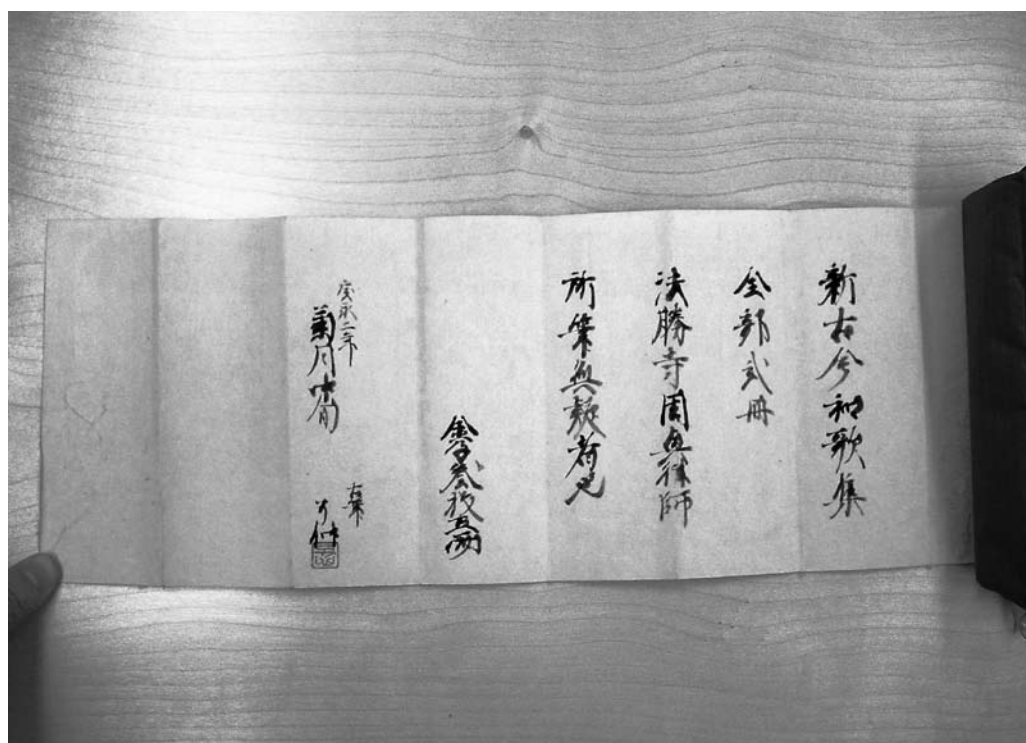 新古今和歌集
全部弐冊
法勝寺周興律師
所筆無疑者也
金子弐枚五両
安永二年
菊月中旬
古筆
了仲